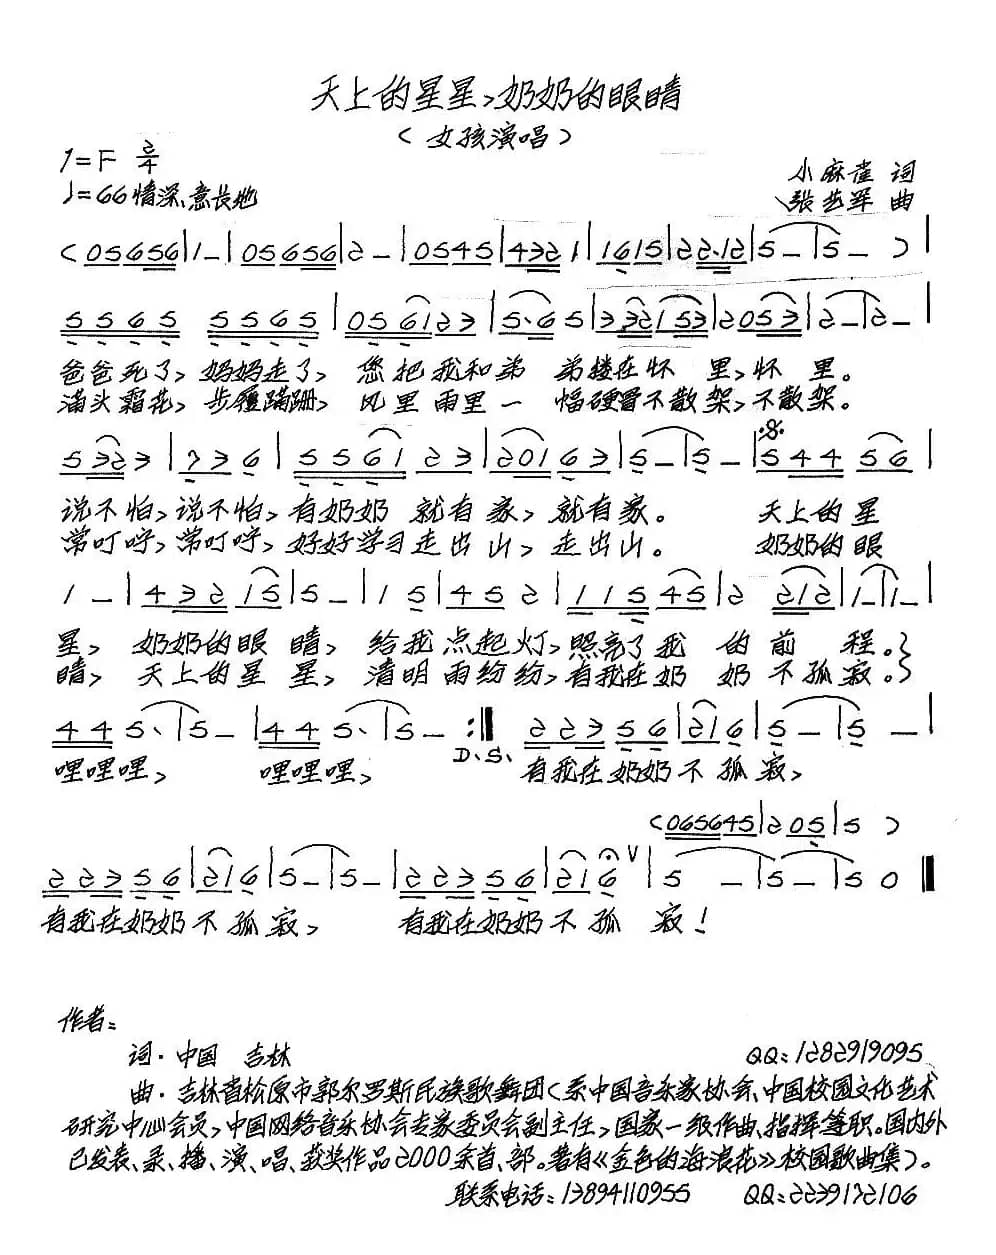 天上的星星，奶奶的眼睛
（女孩演唱）
1=F 2/4
♩=66 情深、意长地
小麻雀 词
张艺军 曲
（05656|1—|05656|2—|0545|4321|1615|22·12|5—|5—）|
5565 5565|056123|5·65|332153|2053|2—|2—|
爸爸死了，妈妈走了，您把我和弟 弟搂在怀 里，怀 里。
满头霜花，步履蹒跚，风里雨里一 幅硬骨不散架，不散架。
5323|736|556123|20163|5—|5—|𝄋544 56|
说不怕，说不怕，有奶奶 就有家，就有家。 天上的星
常叮咛，常叮咛，好好学习走出山，走出山。 奶奶的眼
1—|432 15|5—|1 5|45 2|115 45|2 212|1—|1—|
星，奶奶的眼 睛，给我点起灯，照亮了我 的前 程。}
睛，天上的星 星，清明雨纷纷，有我在奶 奶不孤寂。}
44 5、|5—|44 5、|5—:‖ 223 56|216|5—|5—|
D.S.
哩哩哩， 哩哩哩， 有我在奶奶不 孤 寂，
（065645|205|5 ）
223 56|216|5—|5—|223 56|216 V|5—|5—|5 0‖
有我在奶奶不 孤 寂， 有我在奶奶不 孤 寂！
作者：
词·中国 吉林 QQ：1282919095
曲·吉林省松原市郭尔罗斯民族歌舞团（系中国音乐家协会、中国校园文化艺术
研究中心会员，中国网络音乐协会专家委员会副主任，国家一级作曲、指挥等职。国内外
已发表、录、播、演、唱、获奖作品2000余首、部。著有《金色的海浪花》校园歌曲集）。
联系电话：13894110955 QQ：2239172106